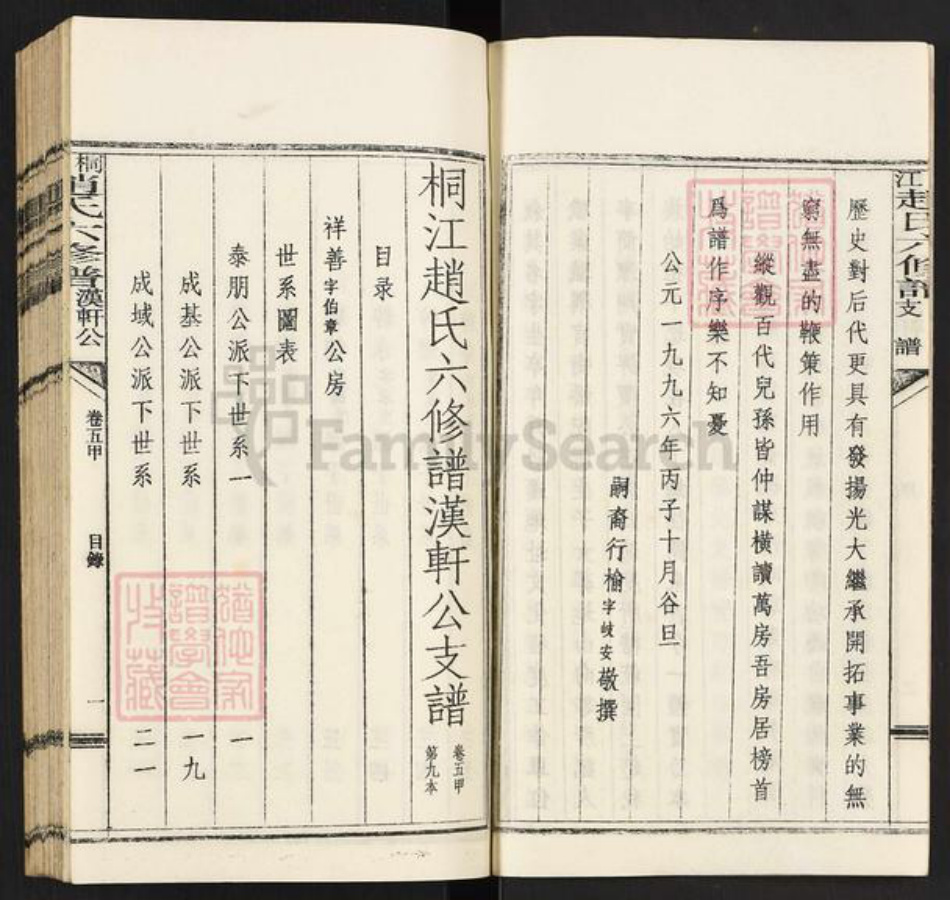 江趙氏六修譜支 譜
歷史對后代更具有發揚光大繼承開拓事業的無
窮無盡的鞭策作用
縱觀百代兒孫皆仲謀橫讀萬房吾房居榜首
爲譜作序樂不知憂
公元一九九六年丙子十月谷旦
嗣裔行榆字岐安敬撰
桐江趙氏六修譜漢軒公支譜
卷五甲
第九本
目录
祥善字伯章公房
世系圖表
泰朋公派下世系一 一
成基公派下世系 一九
成域公派下世系 二一
桐趙氏六修譜漢軒公
卷五甲
目錄
一
FamilySearch
譜學會
收藏